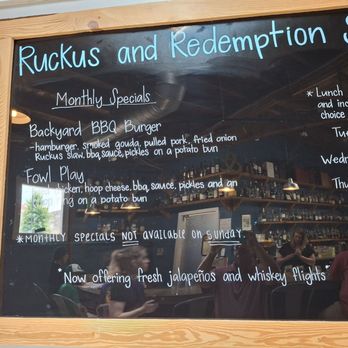 Ruckus and Redemption S
Monthly Specials
Backyard BBQ Burger
-hamburger, smoked gouda, pulled pork, fried onion
Ruckus slaw, bbq sauce, pickles on a potato bun
Fowl Play
chicken, hoop cheese, bbq sauce, pickles and an
ring on a potato bun
*MONTHLY SPECIALS NOT AVAILABLE ON SUNDAY
"Now offering fresh jalapeños and whiskey flights"
* Lunch
and inc
choice
Tue
Wedn
Thu